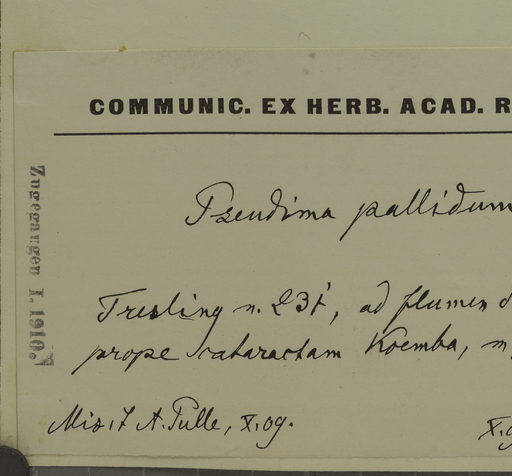 COMMUNIC. EX HERB. ACAD. R
Pseudima pallidum
Tresling n. 231, ad flumen
prope cataractam Koemba,
Misit A. Pulle, X.09.
Zugegangen I. 1910.